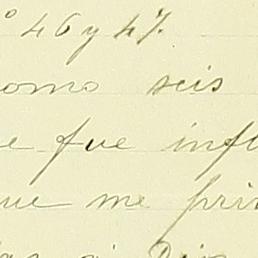 46 y 47.
como seis
fue infl
que me pri